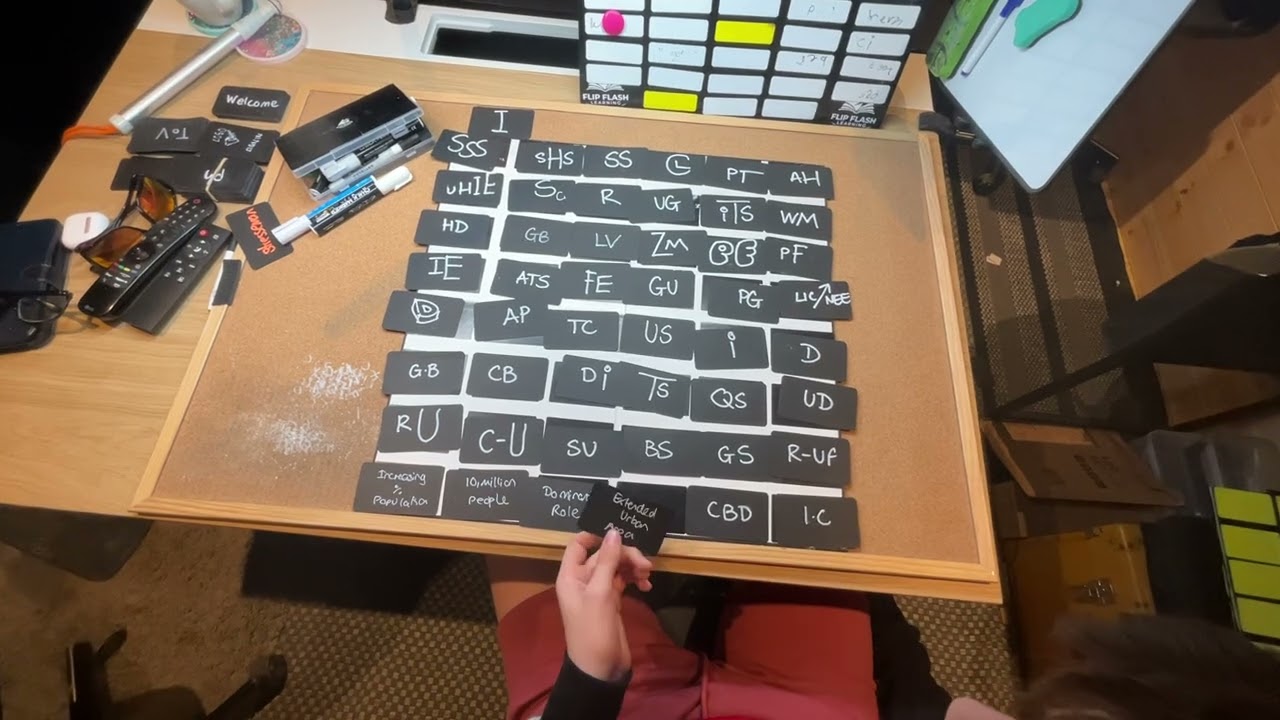 FLIP FLASH
LEARNING
FLIP FLASH
Welcome
ToV
I
SSS
SHS
SS
PT
AH
UHIE
R
UG
iTS
WM
HD
GB
LV
ZM
PF
IE
ATS
FE
GU
PG
LIC/NEE
D
AP
TC
US
i
D
G·B
CB
Di
TS
QS
UD
RU
C-U
SU
BS
GS
R-Uf
Increasing
%
10,million
people
Role
Extended
Urban
Area
CBD
I·C